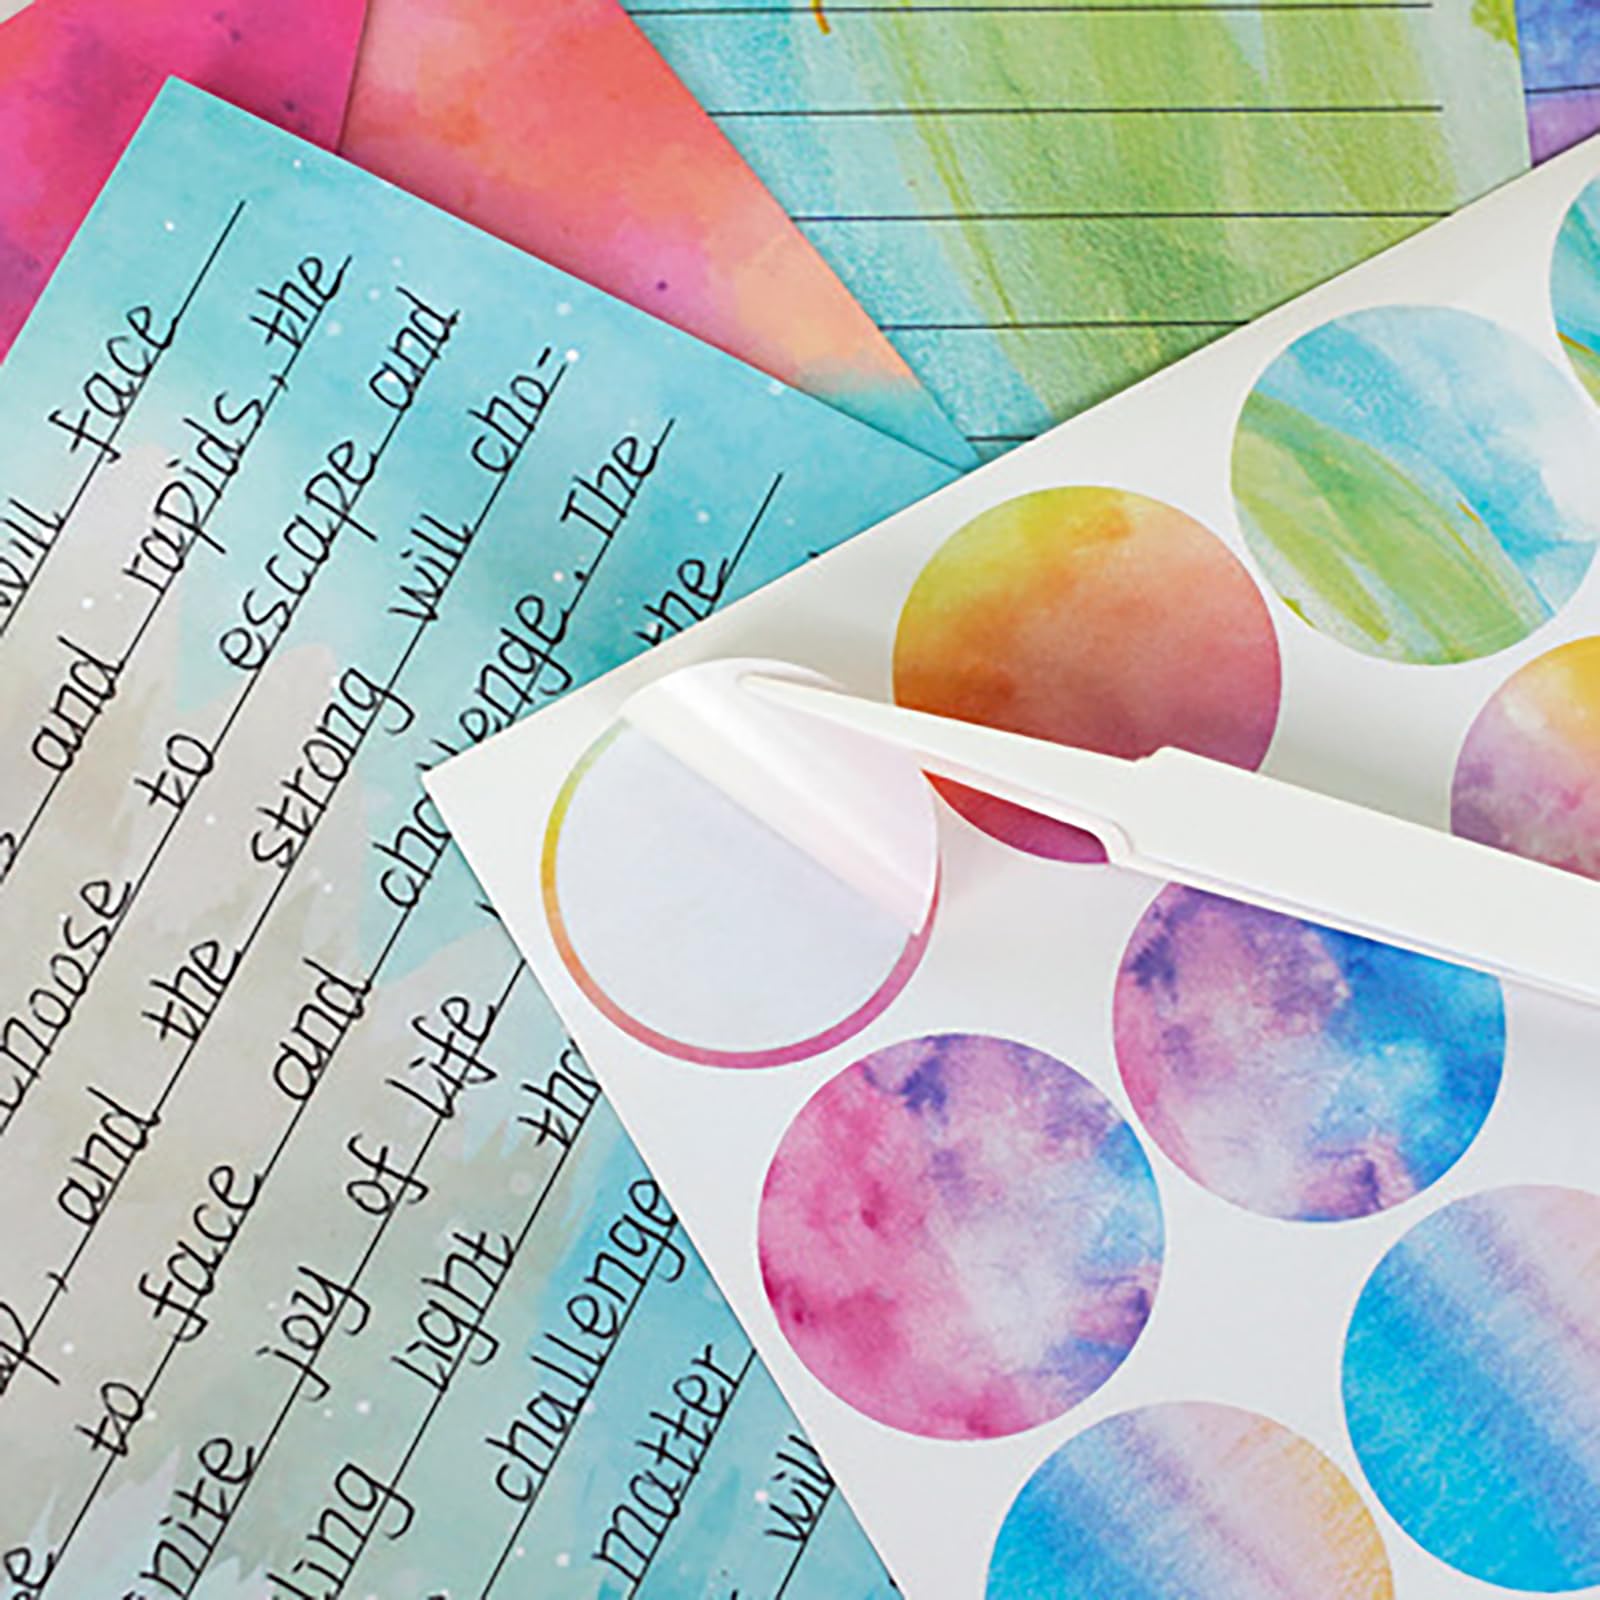 will face
and rapids, the
choose to escape and
, and the strong will cho-
to face and challenge. The
nite joy of life, the
ling light tha
challenge
matter
will